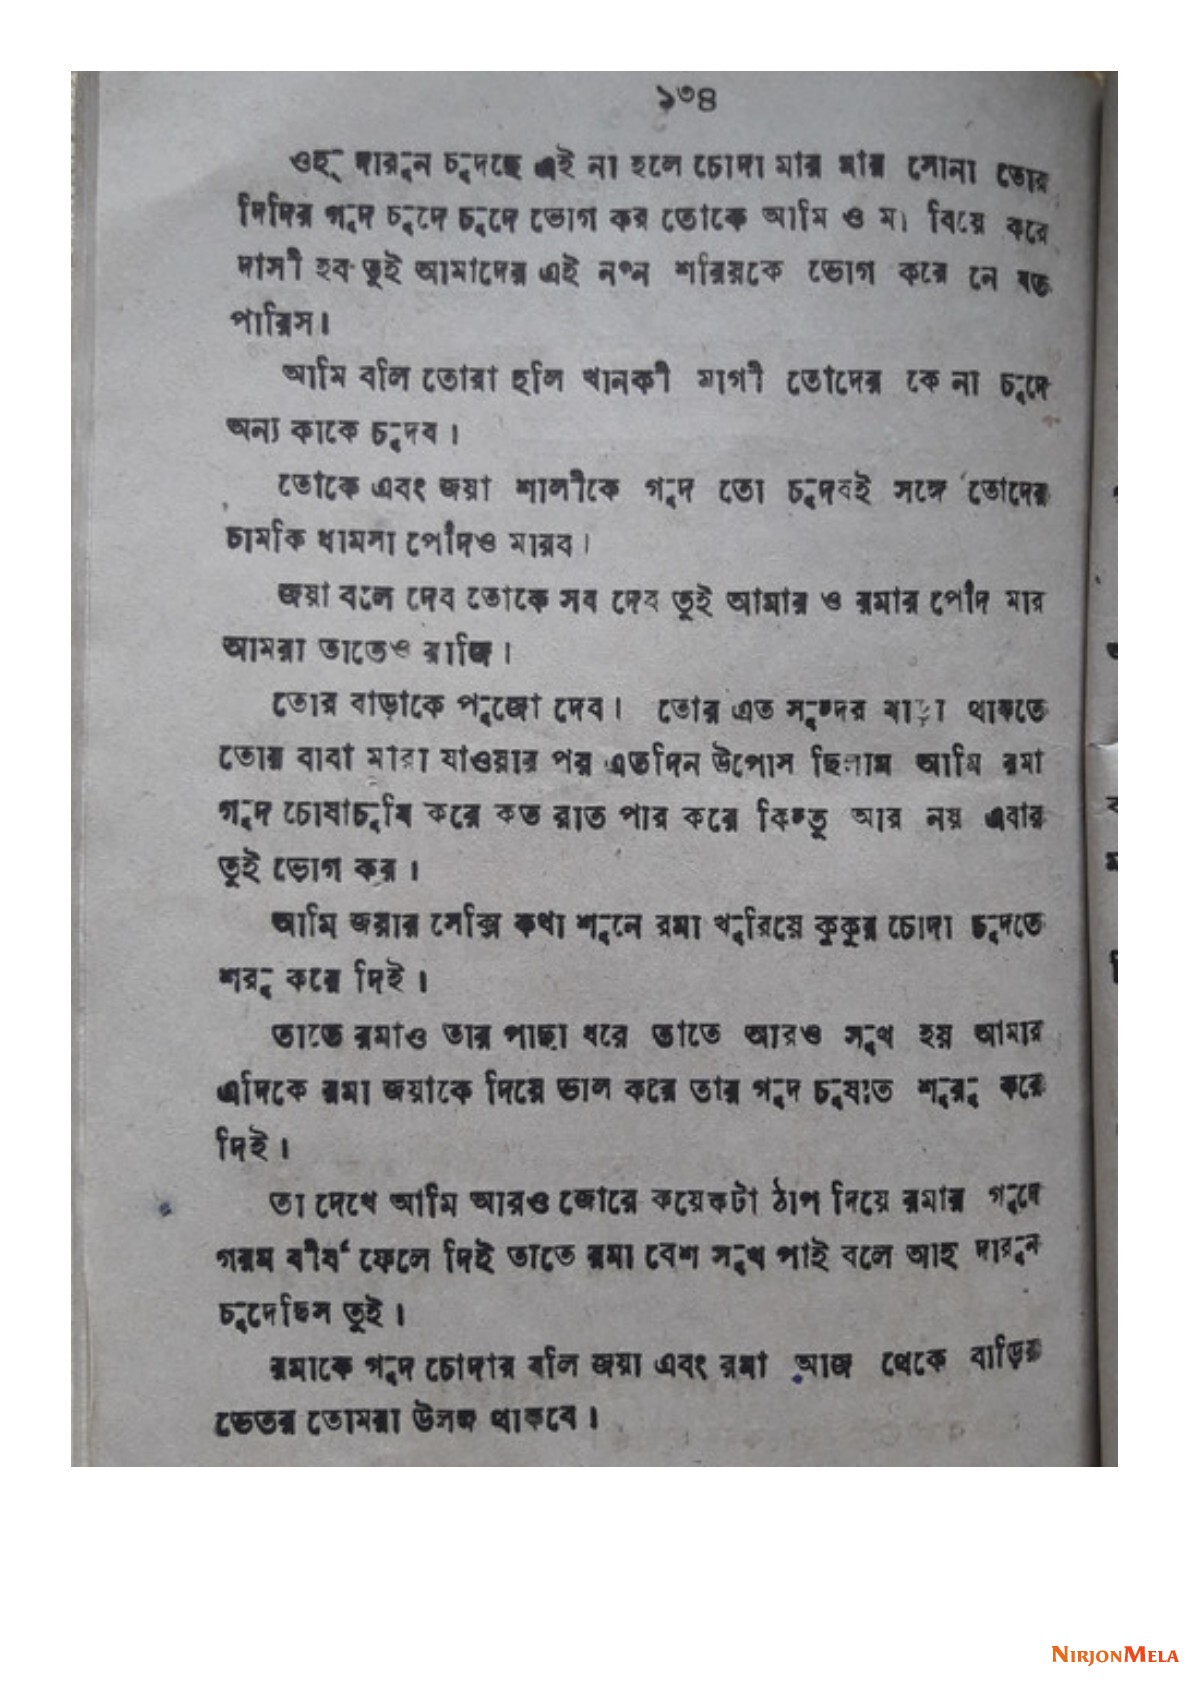 ১৩৪
ওহ্ দারুন চুদছে এই না হলে চোদা মার মার সোনা তোর
দিদির গুদ চুদে চুদে ভোগ কর তোকে আমি ও মা বিয়ে করে
দাসী হব তুই আমাদের এই নগ্ন শরিয়কে ভোগ করে নে যত
পারিস।
আমি বলি তোরা হলি খানকী মাগী তোদের কে না চুদে
অন্য কাকে চুদব।
তোকে এবং জয়া শালীকে গুদ তো চুদবই সঙ্গে তোদের
চামকি ধামসা পোঁদও মারব।
জয়া বলে দেব তোকে সব দেব তুই আমার ও রমার পোঁদ মার
আমরা তাতেও রাজি।
তোর বাড়াকে পুজো দেব। তোর এত সুন্দর বাড়া থাকতে
তোর বাবা মারা যাওয়ার পর এতদিন উপোস ছিলাম আমি রমা
গুদ চোষাচুষি করে কত রাত পার করে কিন্তু আর নয় এবার
তুই ভোগ কর।
আমি জয়ার সেক্সি কথা শুনে রমা ঘুরিয়ে কুকুর চোদা চুদতে
শরু করে দিই।
তাতে রমাও তার পাছা ধরে তাতে আরও সুখ হয় আমার
এদিকে রমা জয়াকে দিয়ে ভাল করে তার গুদ চুষাত শুরু করে
দিই।
তা দেখে আমি আরও জোরে কয়েকটা ঠাপ দিয়ে রমার গুদে
গরম বীর্য ফেলে দিই তাতে রমা বেশ সুখ পাই বলে আহ দারুন
চুদেছিস তুই।
রমাকে গুদ চোদার বলি জয়া এবং রমা আজ থেকে বাড়ির
ভেতর তোমরা উলঙ্গ থাকবে।
NIRJONMELA